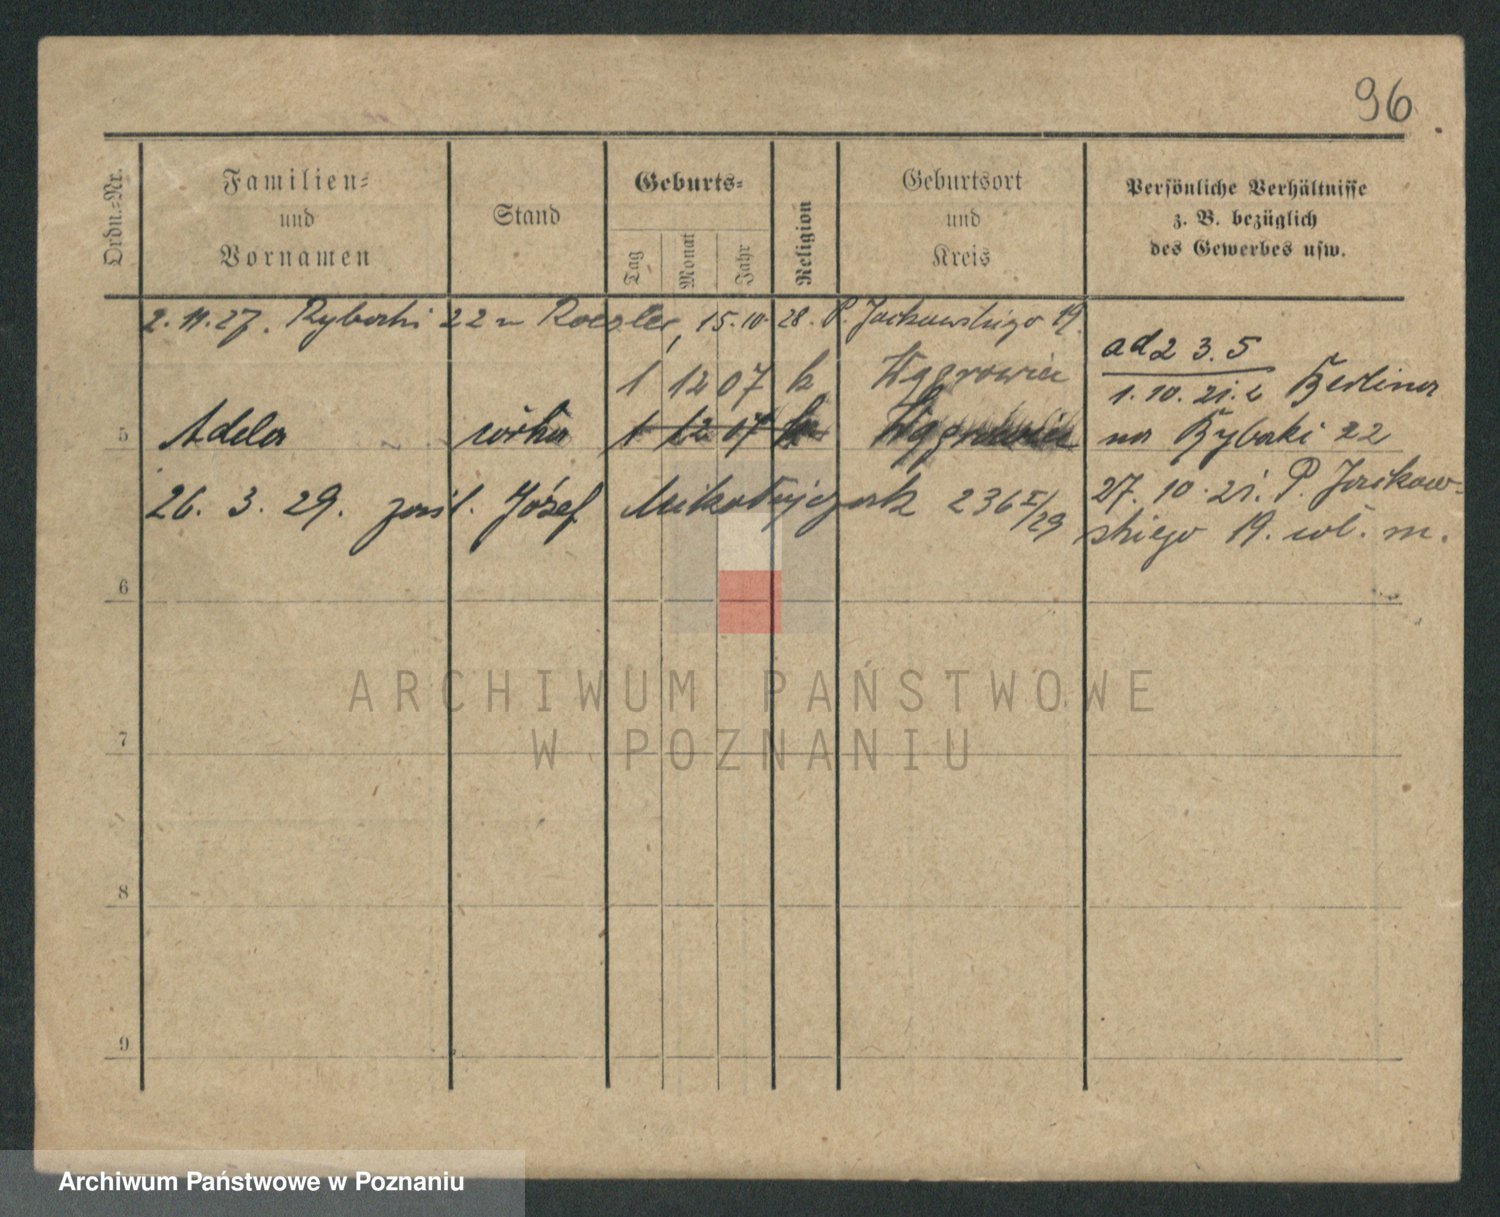 96
Ordn.-Nr.
Familien-
und
Vornamen
Stand
Geburts-
Tag
Monat
Jahr
Religion
Geburtsort
und
Kreis
Persönliche Verhältnisse
z. B. bezüglich
des Gewerbes usw.
2.11.27. Rybaki 22 u Roesler, 15.10.28. P. Jackowskiego 19
1 12 07 k Wągrowiec
5 Adela córka 1 12 07 k Wągrowiec
ad 2 3. 5
1. 10. 21. z Berlina
na Rybaki 22
27. 10. 21. P. Jackow-
skiego 19. wł. m.
26. 3. 29. zaśl. Józef Mikołajczak 236 I/29
6
7
8
9
ARCHIWUM PAŃSTWOWE
W POZNANIU
Archiwum Państwowe w Poznaniu